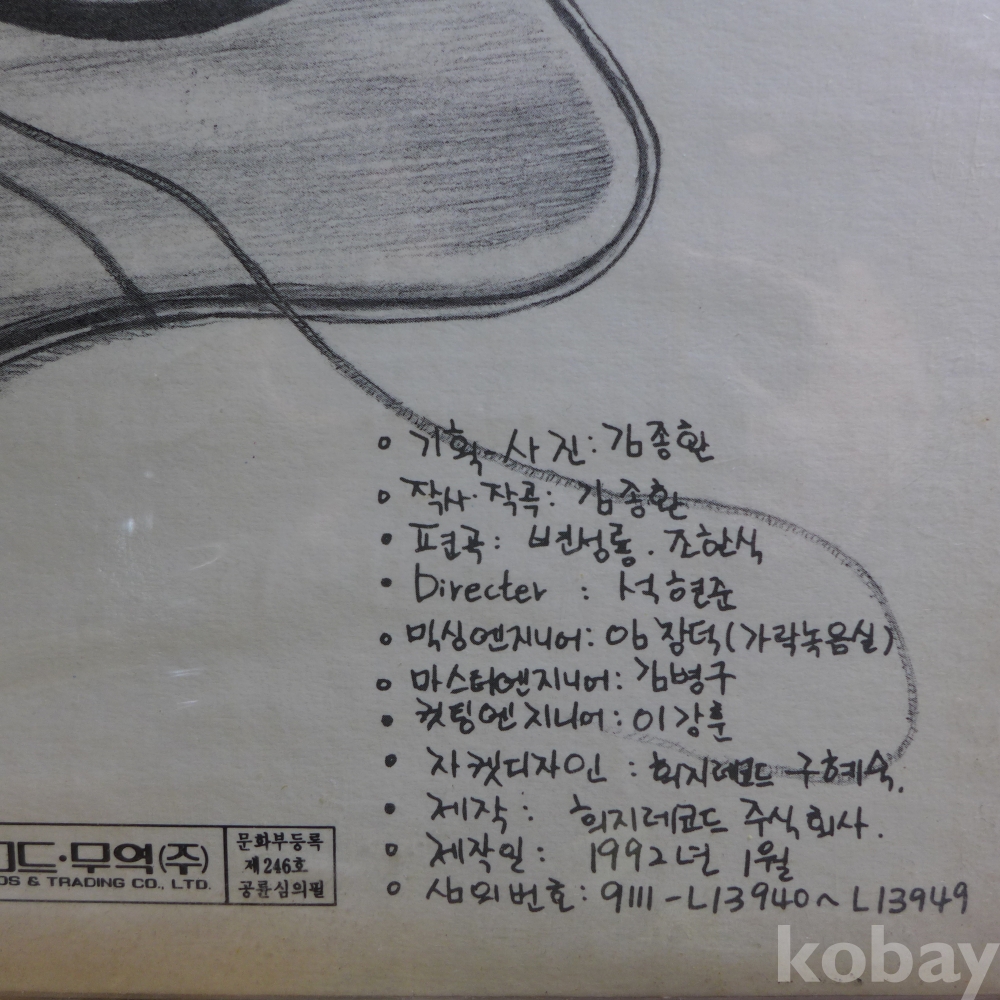 ◦ 기획-사진: 김종환
◦ 작사·작곡: 김종환
• 표현곡: 변성룡. 조한식
• Directer : 석현준
◦ 믹싱엔지니어: 야장덕(가락녹음실)
◦ 마스터엔지니어: 김병구
• 컷팅엔지니어: 이강훈
• 자켓디자인 : 희지레코드 구혜숙.
• 제작: 희지레코드 주식회사.
◦ 제작일: 1992년 1월
◦ 심의번호: 9111-L13940~L13949
코드·무역(주)
DS & TRADING CO., LTD.
문화부등록
제246호
공륜심의필
kobay